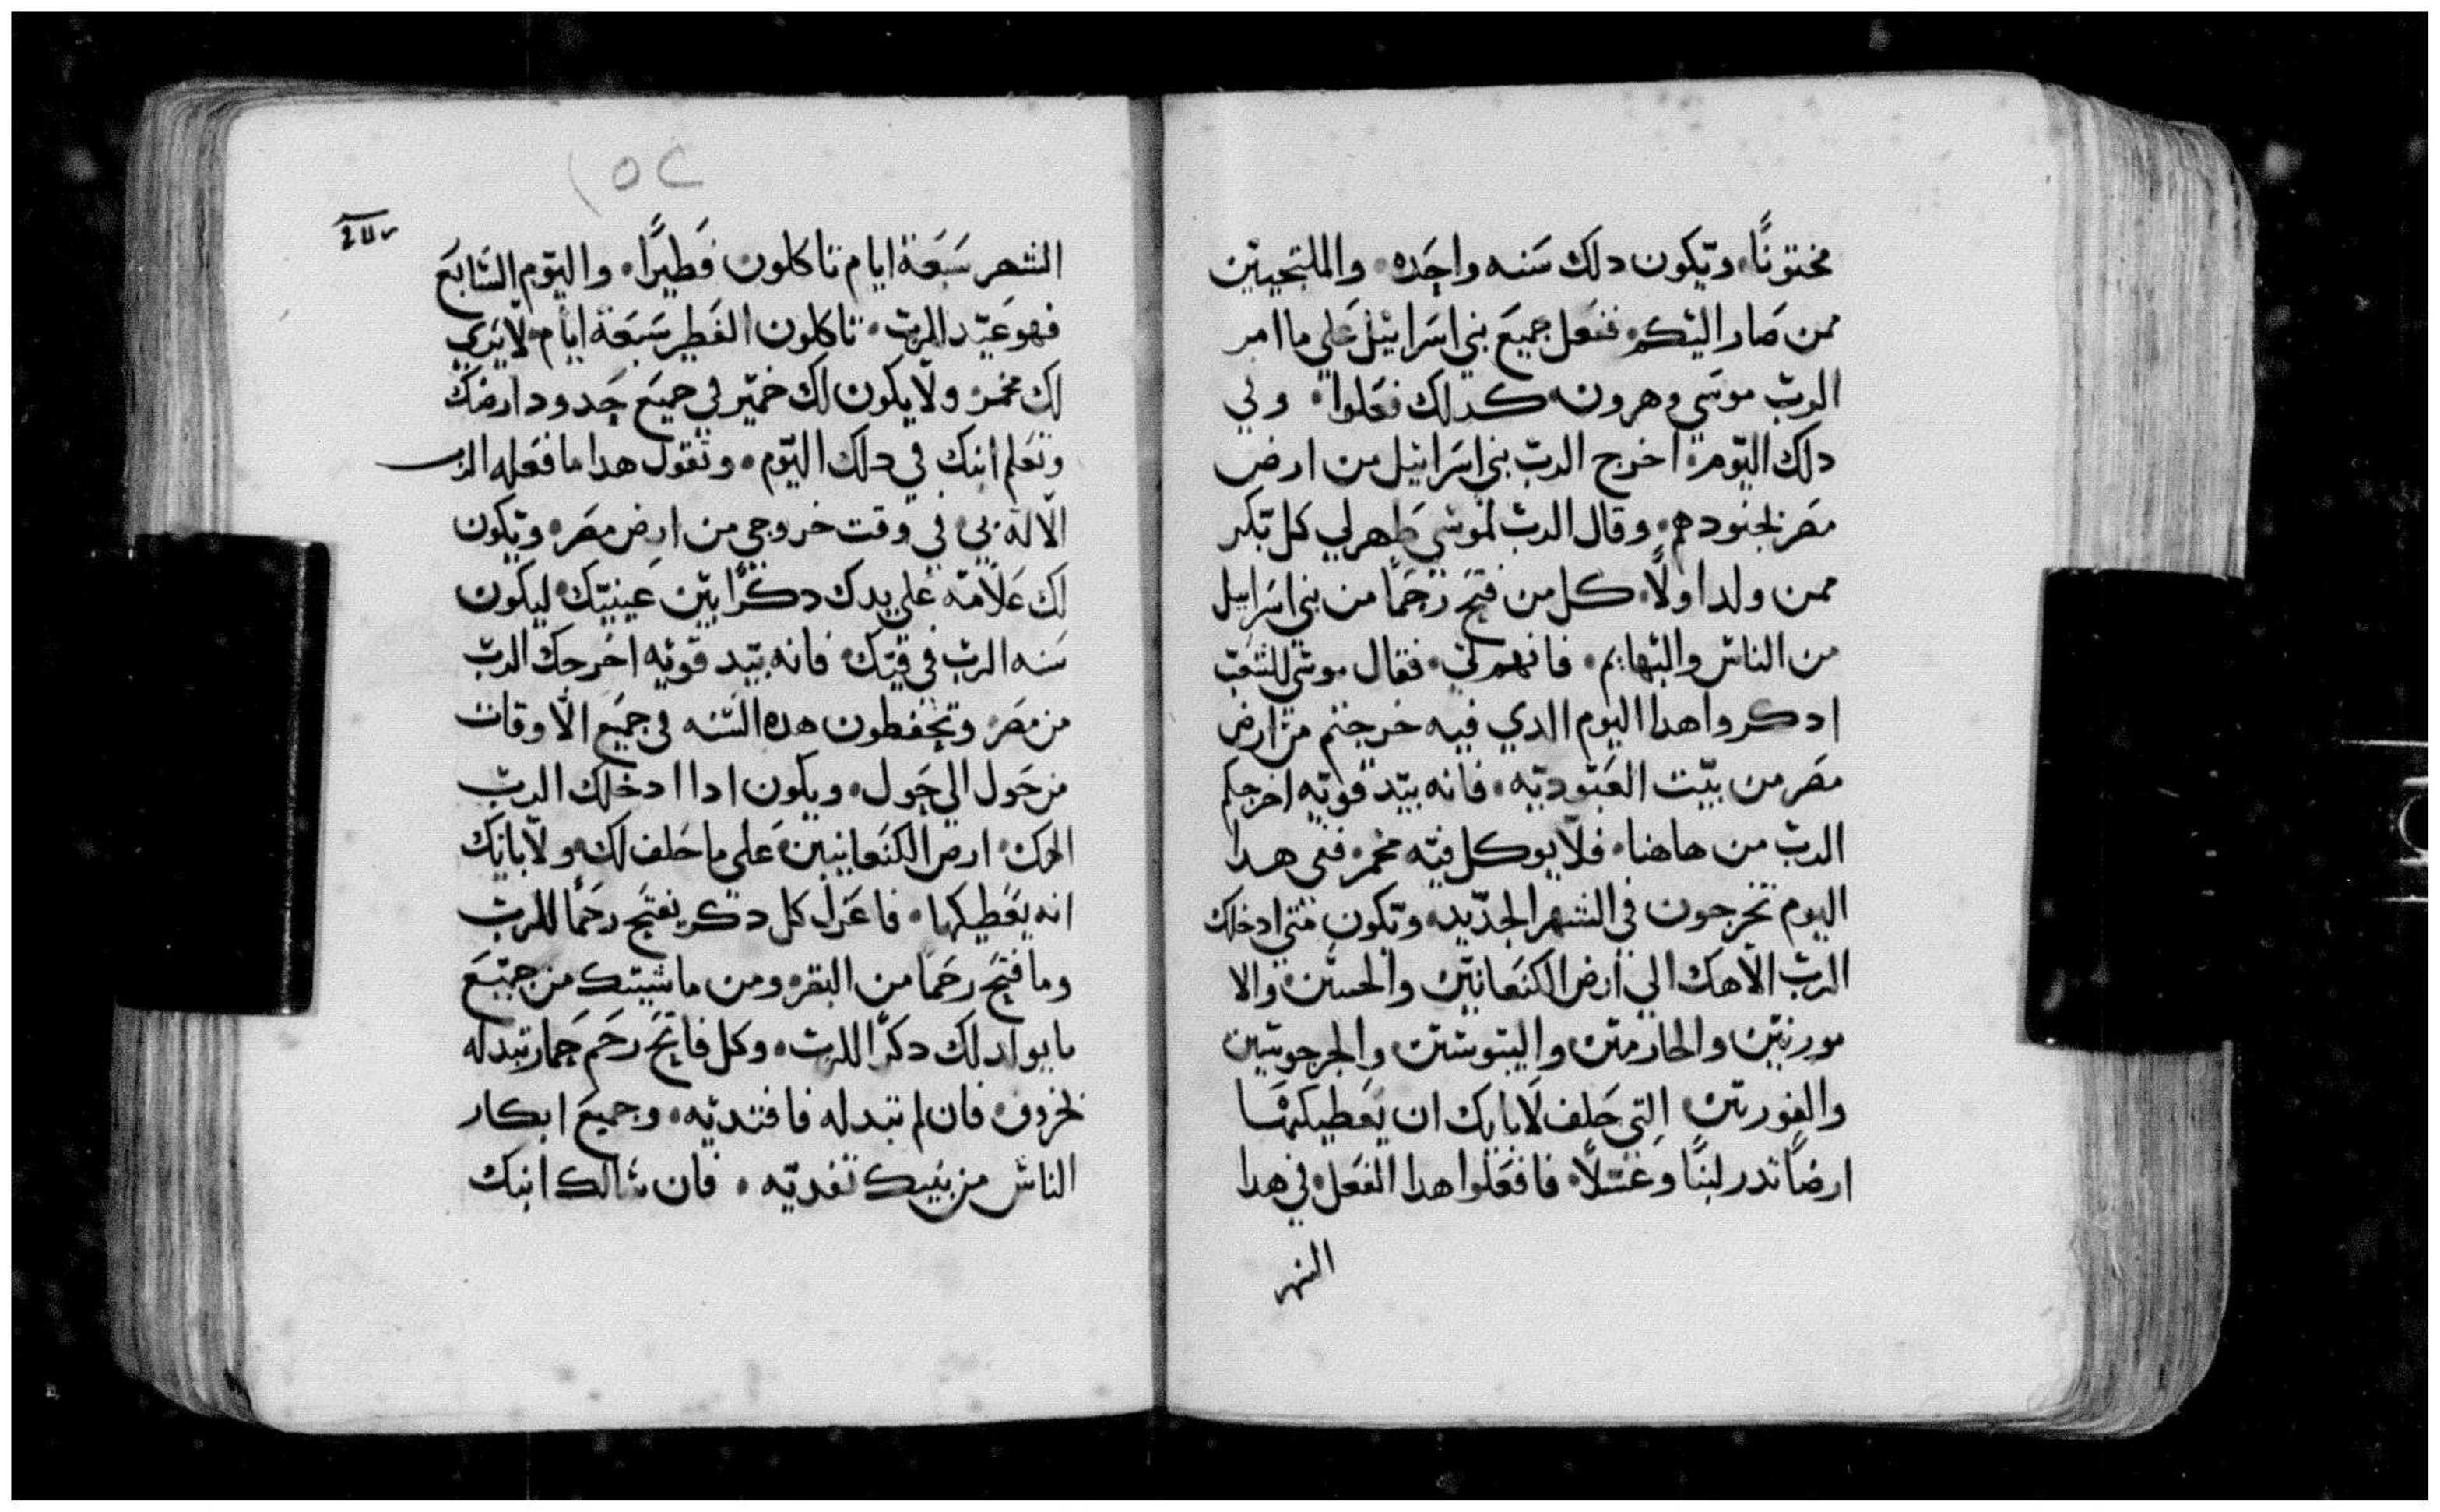 مختونًا، ويكون دلك سَنه واحِده، والملتجيين
ممن صَار اليكم، ففعل جميعَ بني اسَراييل عَلي ما امر
الربّ موسَي وهرون، كدلك فعَلوا، وفي
دلك اليوم، اخرج الربّ بني اسَراييل من ارض
مصَر بجنودهم، وقال الربّ لموسي طهر لي كل بكر
ممن ولد اولًا، كل من فتحَ رَحمًا من بني اسَراييل
من الناسَ والبهايم، فانهم لي، فقال موسَي للشعَب
ادكروا هدا اليوم الدي فيه خرجتم من ارض
مصَر من بيت العَبوديه، فانه بيد قويه اخرجكم
الربّ من هاهنا، فلا يوكل فيه مخمر، ففي هدا
اليوم تخرجون في الشهر الجديد، وتكون متي ادخلك
الربّ الاهك الي ارض الكنعَانيين والحسين والا
مورنيين والحازميين واليبوسَيين والجرجوسيين
والفوريين التي حَلف لابايك ان يعَطيكها
ارضًا تدر لبنًا وعسَلًا، فافعَلوا هدا الفعَل، في هدا
الشهر
١٥٢
الشهر سَبعَة ايام تاكلون فطيرًا، واليوم السَابعَ
فهو عَيد الربّ، تاكلون الفطير سَبعَة ايام، لا يري
لك مخمر، ولا يكون لك خمير في جميعَ حَدود ارضك
وتعَلم ابنك في دلك اليوم، وتقول هدا ما فعَله الرب
الاله بي، في وقت خروجي من ارض مصَر، ويكون
لك عَلامه عَلي يدك دكرًا بين عَينيك، ليكون
سَنه الربّ في فيك، فانه بيد قويه اخرجك الربّ
من مصَر، وتحَفطون هده السَنه في جميعَ الاوقات
من حَول الي حَول، ويكون ادا ادخلك الربّ
الهك، ارض الكنعَانيين، عَلي ما حَلف لك، ولابايك
انه يعَطيكها، فاعَزل كل دكر يفتحَ رحَمًا للربّ
وما فتحَ رحَمًا من البقر، ومن ماشيتك من جميعَ
ما يولد لك دكرًا للربّ، وكل فاتحَ رحَم حَمار تبدله
بخروف، فان لم تبدله فافتديه، وجميعَ ابكار
الناسَ من بنيك تفديه، فان سَالك ابنك